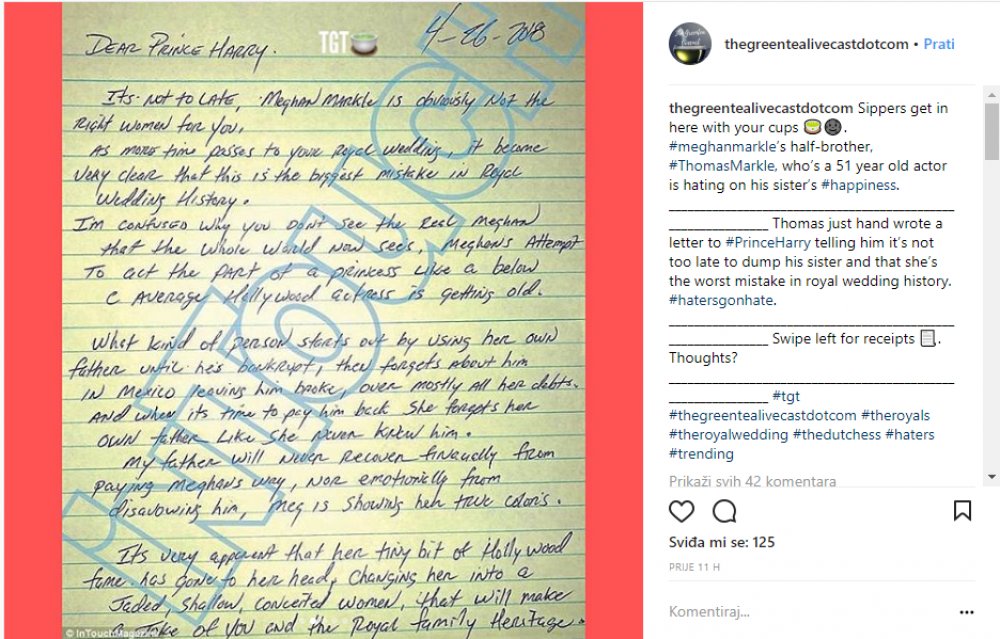 DEAR PRINCE HARRY.
TGT
4-26-2018
Its not to LATE, Meghan Markle is obviously Not the
Right women for you.
AS more time passes to your Royal Wedding, it became
very clear that this is the biggest mistake in Royal
Wedding History.
I'm confused why you don't see the real Meghan
that the whole world now sees, Meghans Attempt
To act the PART of a princess Like a below
C Average Hollywood actress is getting old.
What kind of person starts out by using her own
father until he's bankrupt, then forgets about him
IN Mexico leaving him broke, over mostly all her debts.
And when its time to pay him back she forgets her
OWN father Like She Never knew him.
My father will Never Recover financually from
paying Meghans way, NOR emotionally from
disavowing him, Meg is showing her true colors.
Its very apparent that her tiny bit of Hollywood
fame has gone to her head, Changing her into a
Jaded, Shallow, conceited women, that will make
a Joke of you and the Royal family Heritage.
INTOUCH
© InTouchMagazine
thegreentealivecastdotcom • Prati
thegreentealivecastdotcom Sippers get in
here with your cups 🍵🌚.
#meghanmarkle's half-brother,
#ThomasMarkle, who's a 51 year old actor
is hating on his sister's #happiness.
Thomas just hand wrote a
letter to #PrinceHarry telling him it's not
too late to dump his sister and that she's
the worst mistake in royal wedding history.
#hatersgonhate.
Swipe left for receipts 📃.
Thoughts?
#tgt
#thegreentealivecastdotcom #theroyals
#theroyalwedding #thedutchess #haters
#trending
Prikaži svih 42 komentara
Sviđa mi se: 125
PRIJE 11 H
Komentiraj...